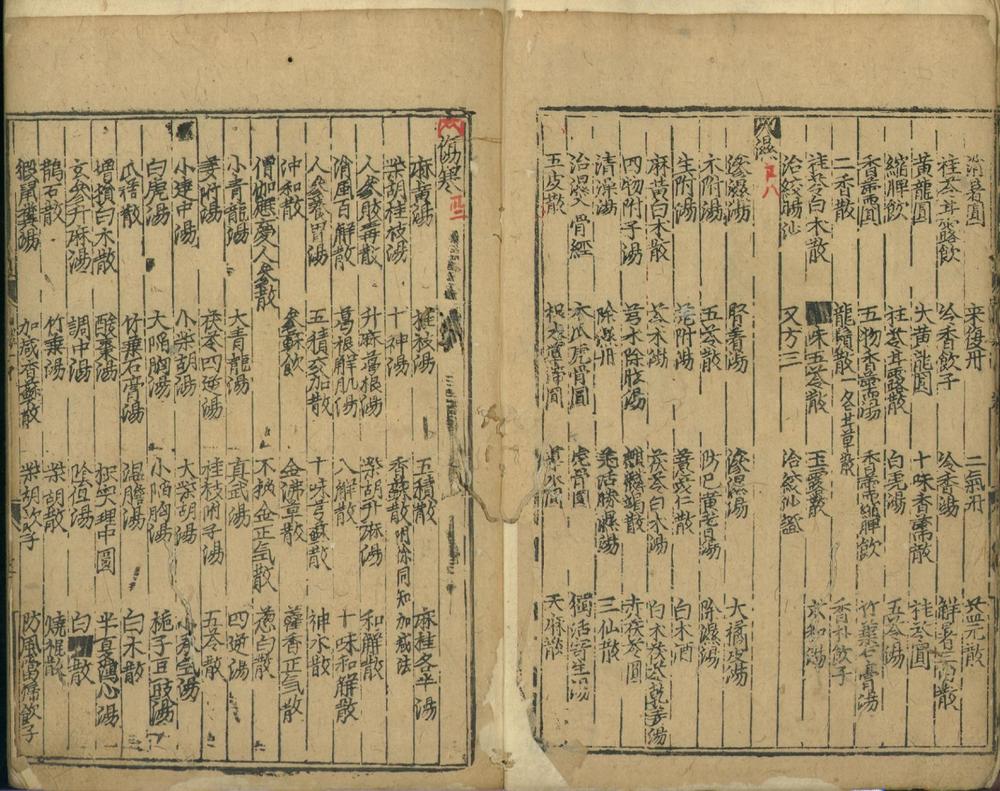 消暑圓 来復丹 二氣丹 益元散
桂苓甘露飲 冷香飲子 冷香湯 解暑三白散
黃龍圓 大黃龍圓 十味香薷散 桂苓圓
縮脾飲 桂苓甘露散 白虎湯 五苓湯
香薷圓 五物香薷湯 香薷縮脾飲 竹葉石膏湯
二香散 龍鬚散一名甘草散 香朴飲子
桂苓白朮散 味五苓散 玉靈散
治絞腸沙 又方三
濕 四八
滲濕湯 腎着湯 滲濕湯 大橘皮湯
朮附湯 五苓散 防己黃芪湯 除濕湯
生附湯 薏苡仁散 白朮酒
麻黃白朮散 苓朮湯 茯苓白朮湯 白朮茯苓乾姜湯
四物附子湯 麒麟竭散 赤茯苓圓
清燥湯 除濕丹 羌活勝濕湯 三仙散
治濕入骨經 木瓜虎骨圓 虎骨圓 獨活寄生湯
五皮散 天麻散
傷寒 四二
麻黃湯 桂枝湯 五積散 麻桂各半湯
柴胡桂枝湯 十神湯 香蘇散
人參敗毒散 升麻葛根湯 柴胡升麻湯 和解散
消風百解散 葛根解肌湯 八解散 十味和解散
人參養胃湯 五積交加散 十味芎蘇散 神朮散
沖和散 參蘇飲 金沸草散 藿香正氣散
僧伽應夢人參散 不換金正氣散 葱白散
小青龍湯 大青龍湯 真武湯 四逆湯
姜附湯 茯苓四逆湯 桂枝附子湯 五苓散
小建中湯 小柴胡湯 大柴胡湯 小承氣湯
白虎湯 大陷胸湯 小陷胸湯 梔子豆豉湯
瓜蒂散 竹葉石膏湯 溫膽湯 白朮散
增損白朮散 酸棗湯 枳實理中圓 半夏瀉心湯
玄參升麻湯 調中湯 陰旦湯 白散
鵲石散 竹葉湯 柴胡散 燒裩散
猳鼠糞湯 加減香蘇散 防風當歸飲子